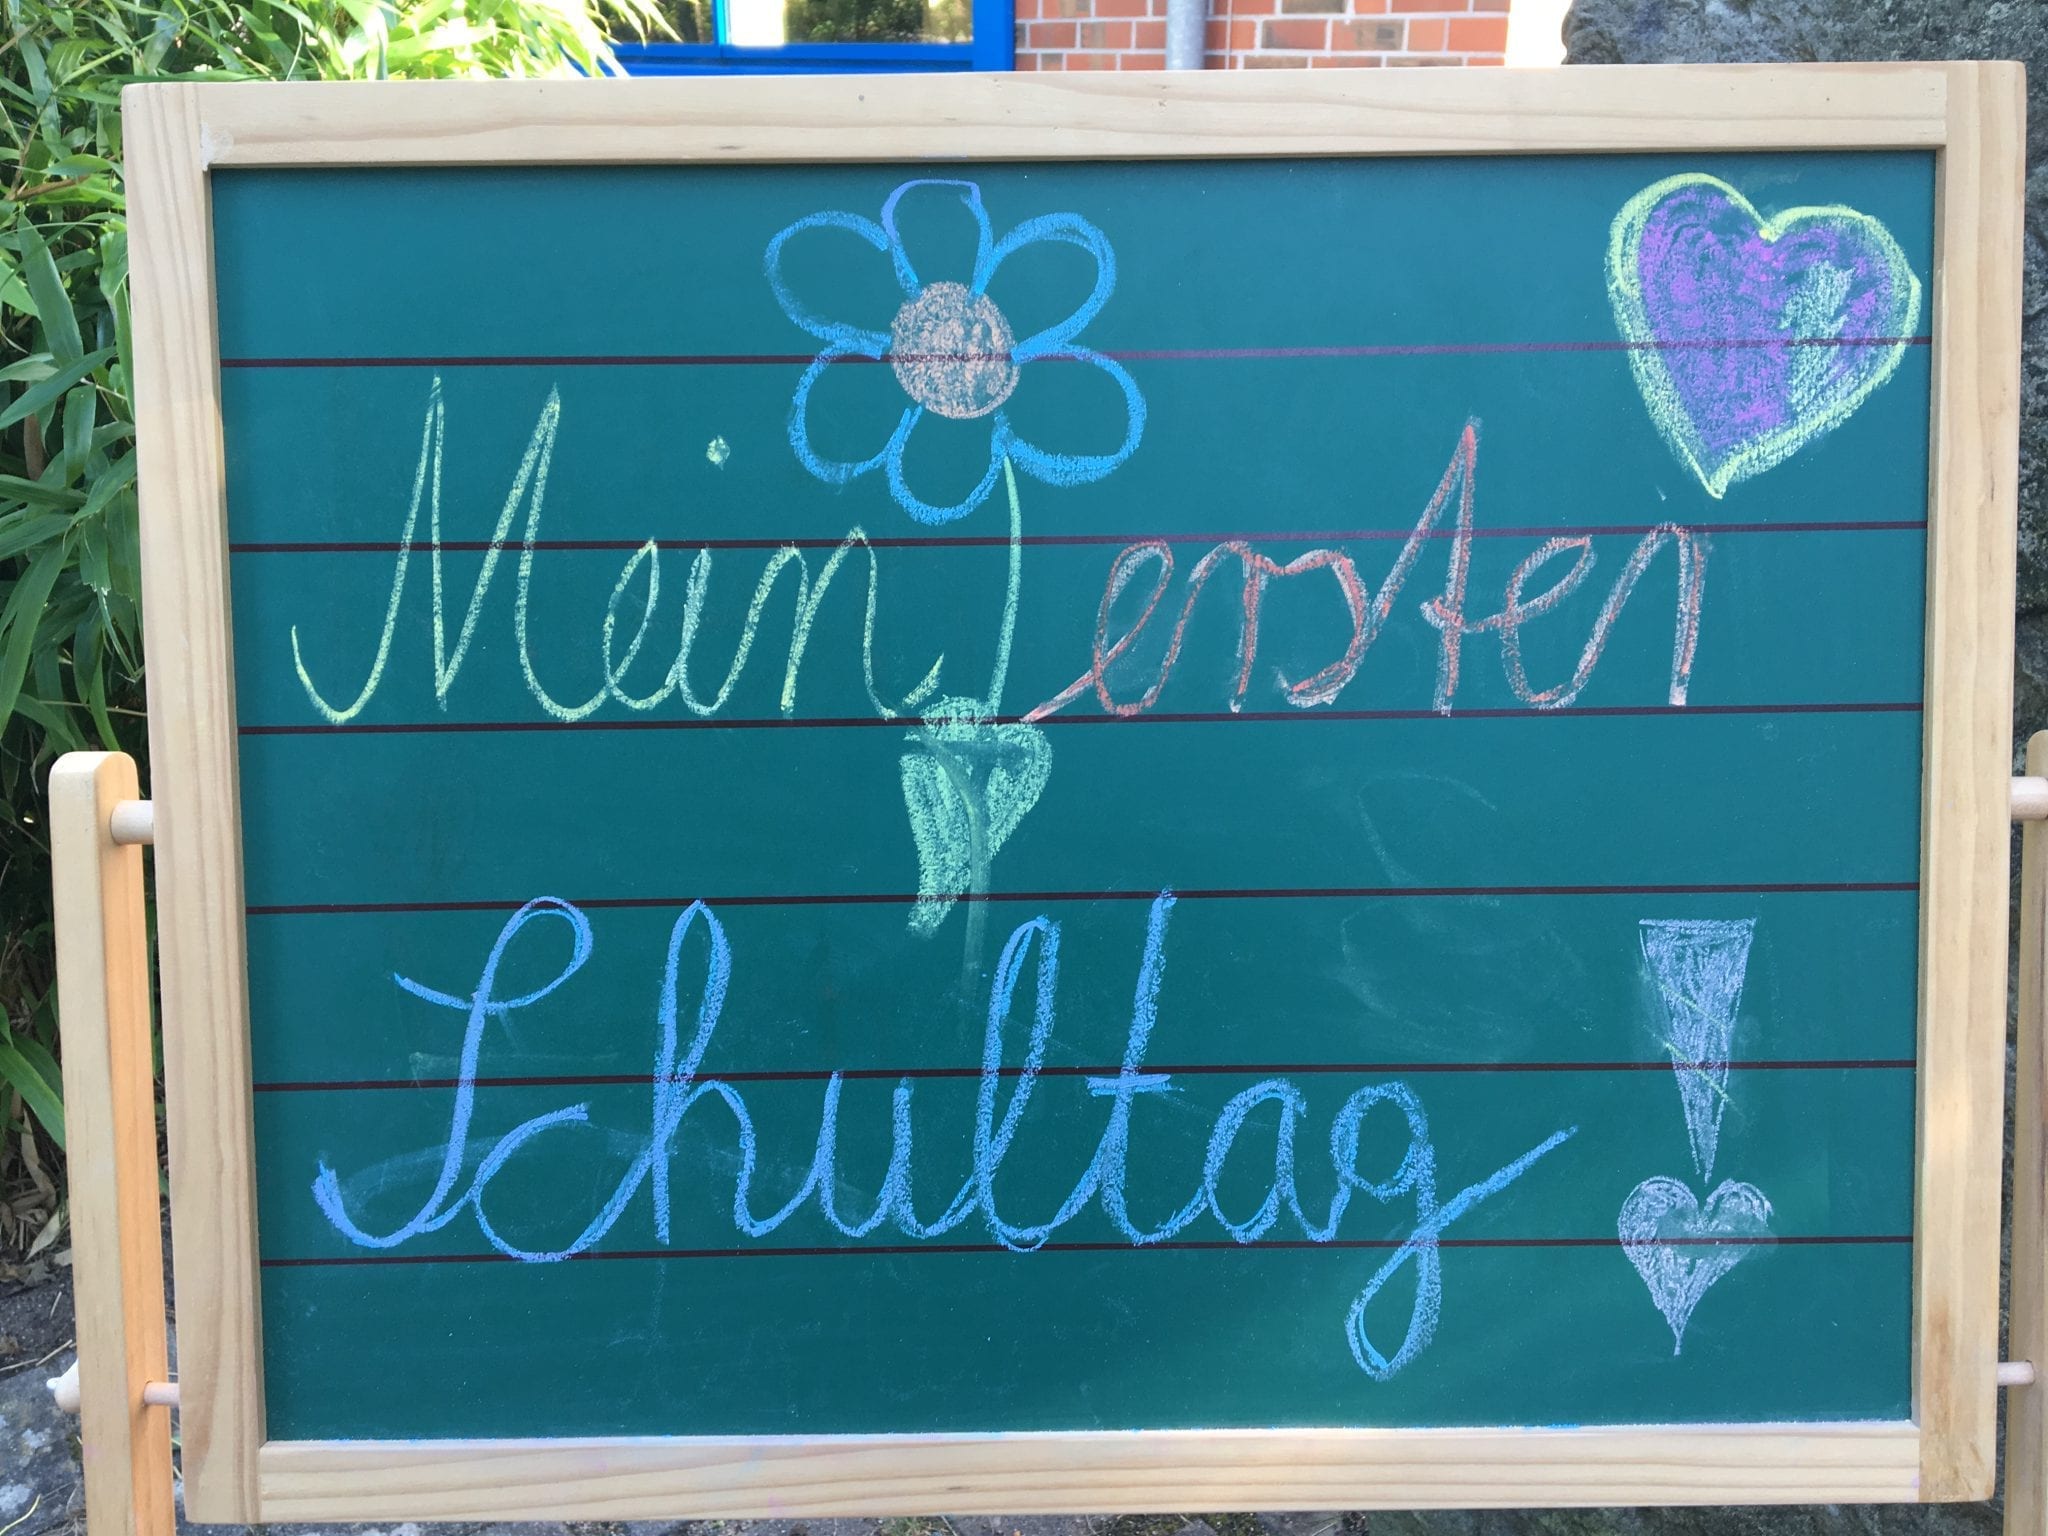 Mein erster
Schultag!